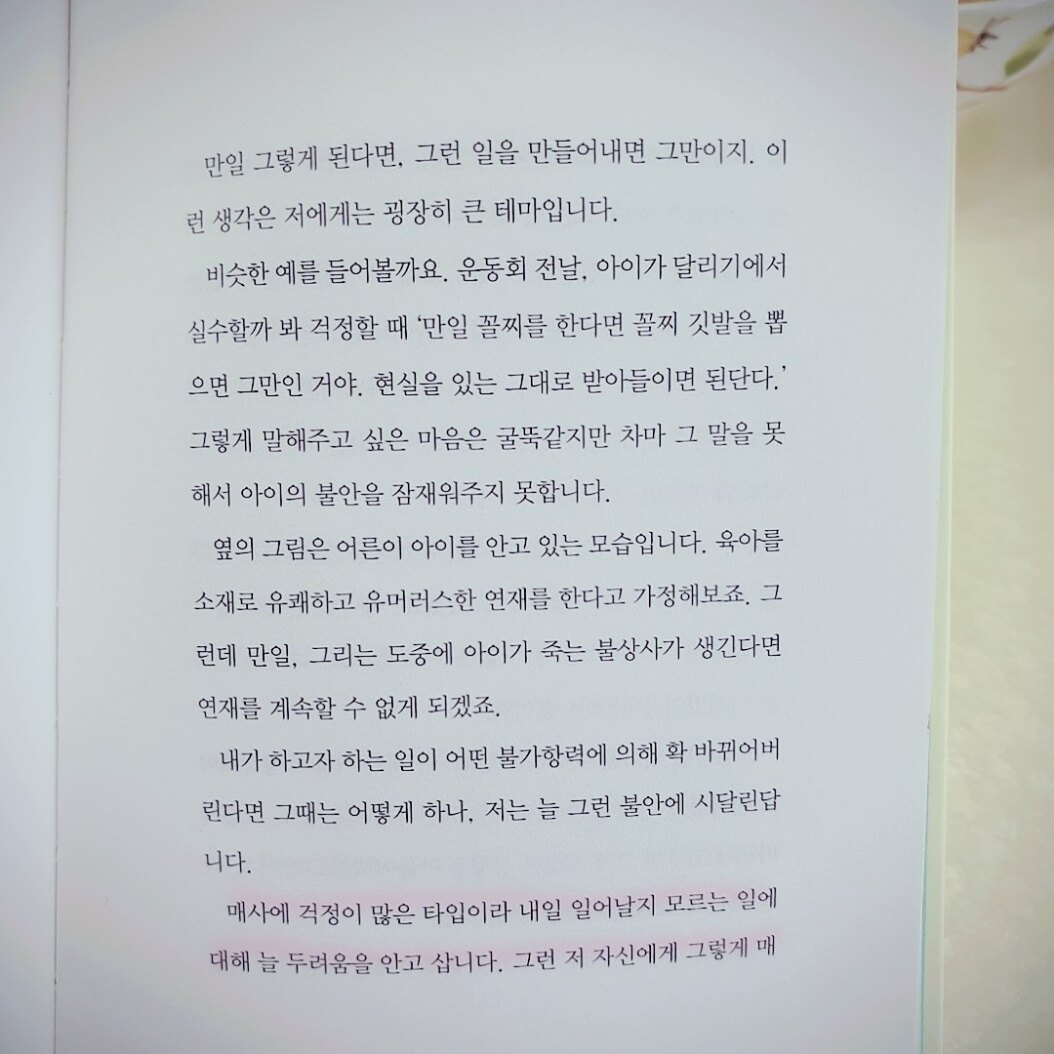 만일 그렇게 된다면, 그런 일을 만들어내면 그만이지. 이
런 생각은 저에게는 굉장히 큰 테마입니다.
비슷한 예를 들어볼까요. 운동회 전날, 아이가 달리기에서
실수할까 봐 걱정할 때 ‘만일 꼴찌를 한다면 꼴찌 깃발을 뽑
으면 그만인 거야. 현실을 있는 그대로 받아들이면 된단다.’
그렇게 말해주고 싶은 마음은 굴뚝같지만 차마 그 말을 못
해서 아이의 불안을 잠재워주지 못합니다.
옆의 그림은 어른이 아이를 안고 있는 모습입니다. 육아를
소재로 유쾌하고 유머러스한 연재를 한다고 가정해보죠. 그
런데 만일, 그리는 도중에 아이가 죽는 불상사가 생긴다면
연재를 계속할 수 없게 되겠죠.
내가 하고자 하는 일이 어떤 불가항력에 의해 확 바뀌어버
린다면 그때는 어떻게 하나, 저는 늘 그런 불안에 시달린답
니다.
매사에 걱정이 많은 타입이라 내일 일어날지 모르는 일에
대해 늘 두려움을 안고 삽니다. 그런 저 자신에게 그렇게 매